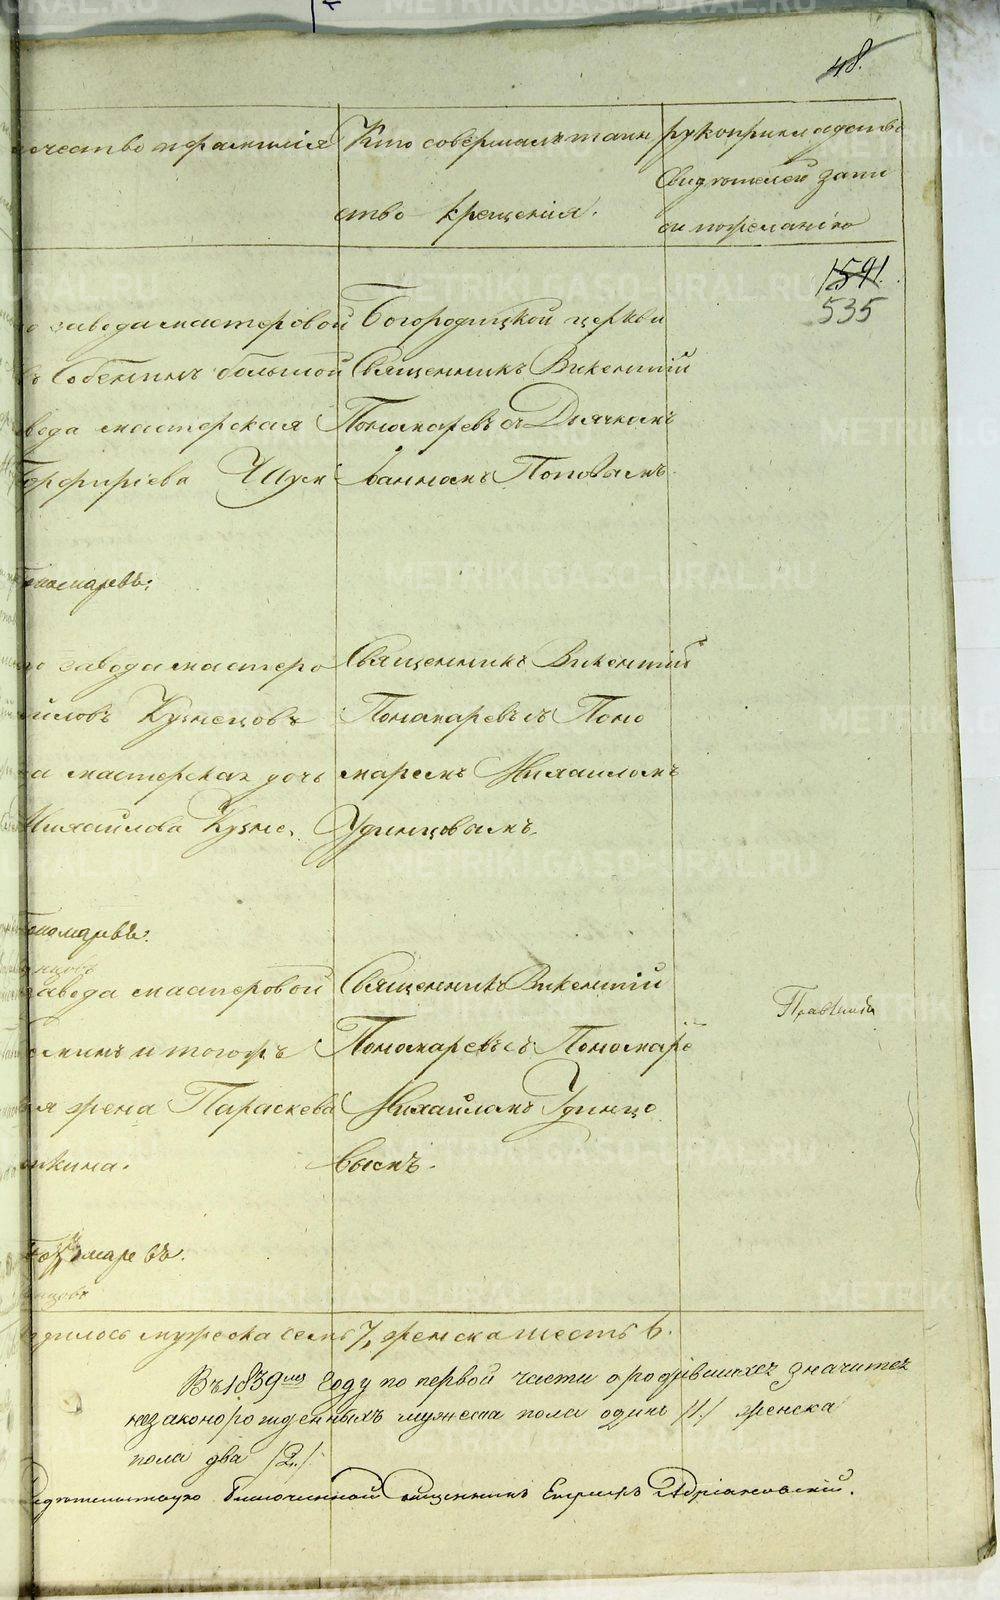 48.
отчество и фамилія
Кто совершалъ таин
ство крещенія.
рукоприкладство
свидѣтелей запи
си по желанію
1591.
535
завода мастеровой
Собенинъ большой
вода мастерская
Порфиріева
Богородицкой церкви
Священникъ Викентій
Пономаревъ съ Дьячкомъ
Іоанномъ Поповымъ.
Пономаревъ.
завода мастеро
Кузнецовъ
мастерская дочь
Михайлова Кузне
Священникъ Викентій
Пономаревъ съ Поно
маремъ Михаиломъ
Удинцовымъ.
Пономаревъ.
завода мастеровой
и тогожъ
жена Параскева
Священникъ Викентій
Пономаревъ съ Пономаре
Михайломъ Удинцо
вымъ.
Пономаревъ.
мужеска семь 7, женска шесть 6.
Въ 1839мъ году по первой части о родившихся значится
незаконорожденныхъ мужеска пола одинъ /1./ женска
пола два /2./
Благочинной Священникъ Адріановскій.
METRIKI.GASO-URAL.RU